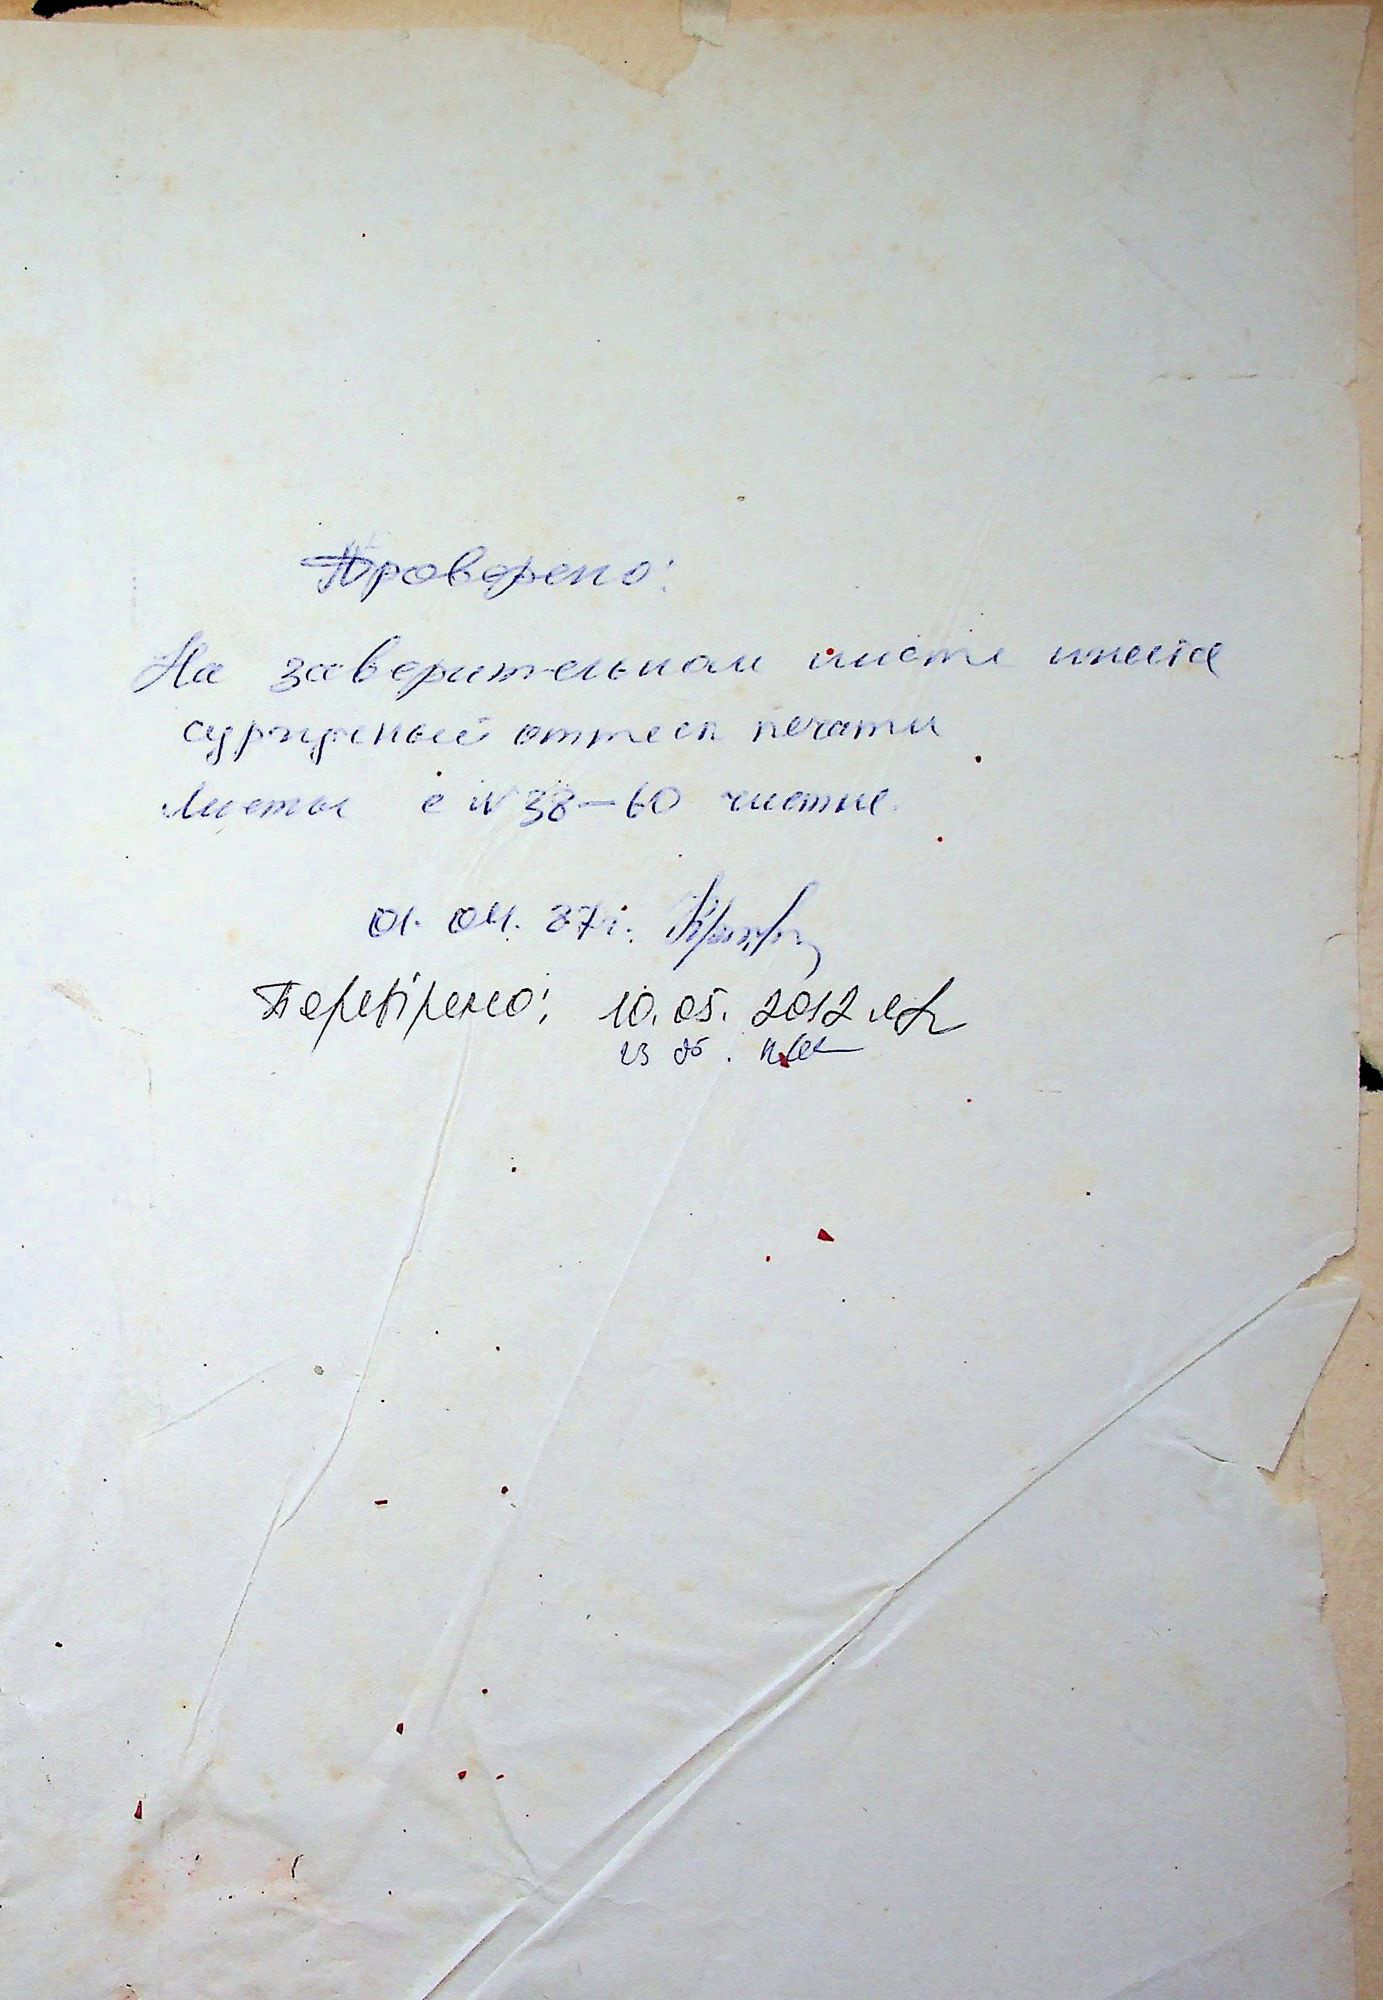 Проверено:
На заверительном листе имеется
сургучный оттиск печати
Листы с № 38–60 чистые.
01. 04. 87г.
Перевірено: 10.05. 2012
23 05.